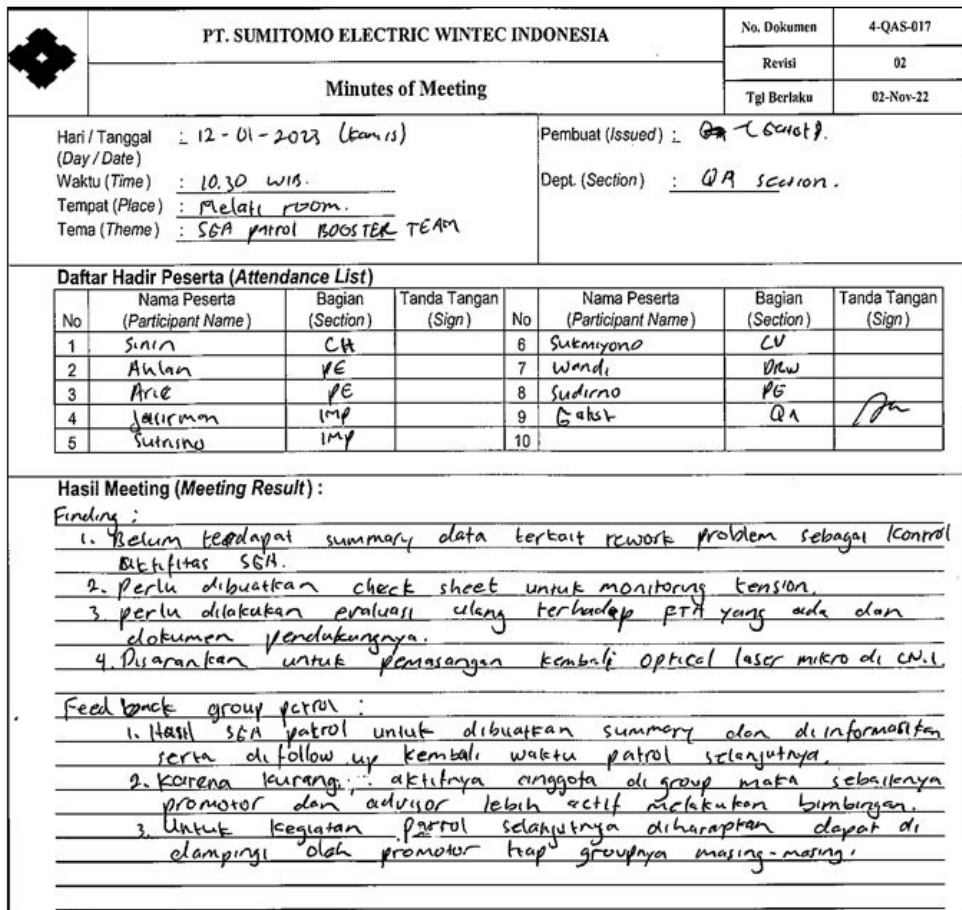 PT. SUMITOMO ELECTRIC WINTEC INDONESIA
No. Dokumen 4-QAS-017
Revisi 02
Minutes of Meeting
Tgl Berlaku 02-Nov-22
Hari / Tanggal : 12-01-2023 (kamis)
(Day / Date)
Waktu (Time) : 10.30 WIB.
Tempat (Place) : Melati room.
Tema (Theme) : SGA patrol BOOSTER TEAM
Pembuat (Issued) :
Dept. (Section) : QA section.
Daftar Hadir Peserta (Attendance List)
No Nama Peserta (Participant Name) Bagian (Section) Tanda Tangan (Sign) No Nama Peserta (Participant Name) Bagian (Section) Tanda Tangan (Sign)
1 Sinin CH 6 Sukmiyono CV
2 Ahlan PE 7 Wandi DRW
3 Arie PE 8 Sudirno PE
4 IMP 9 Gatot QA
5 Sutrisno IMP 10
Hasil Meeting (Meeting Result) :
Finding :
1. Belum terdapat summary data terkait rework problem sebagai kontrol
aktifitas SGA.
2. Perlu dibuatkan check sheet untuk monitoring tension.
3. perlu dilakukan evaluasi ulang terhadap FTA yang ada dan
dokumen pendukungnya.
4. Disarankan untuk pemasangan kembali optical laser mikro di CN.1.
Feed back group patrol :
1. Hasil SGA patrol untuk dibuatkan summary dan di informasikan
serta di follow up kembali waktu patrol selanjutnya.
2. Karena kurang aktifnya anggota di group maka sebaiknya
promotor dan advisor lebih actif melakukan bimbingan.
3. Untuk kegiatan patrol selanjutnya diharapkan dapat di
dampingi oleh promotor tiap groupnya masing-masing.